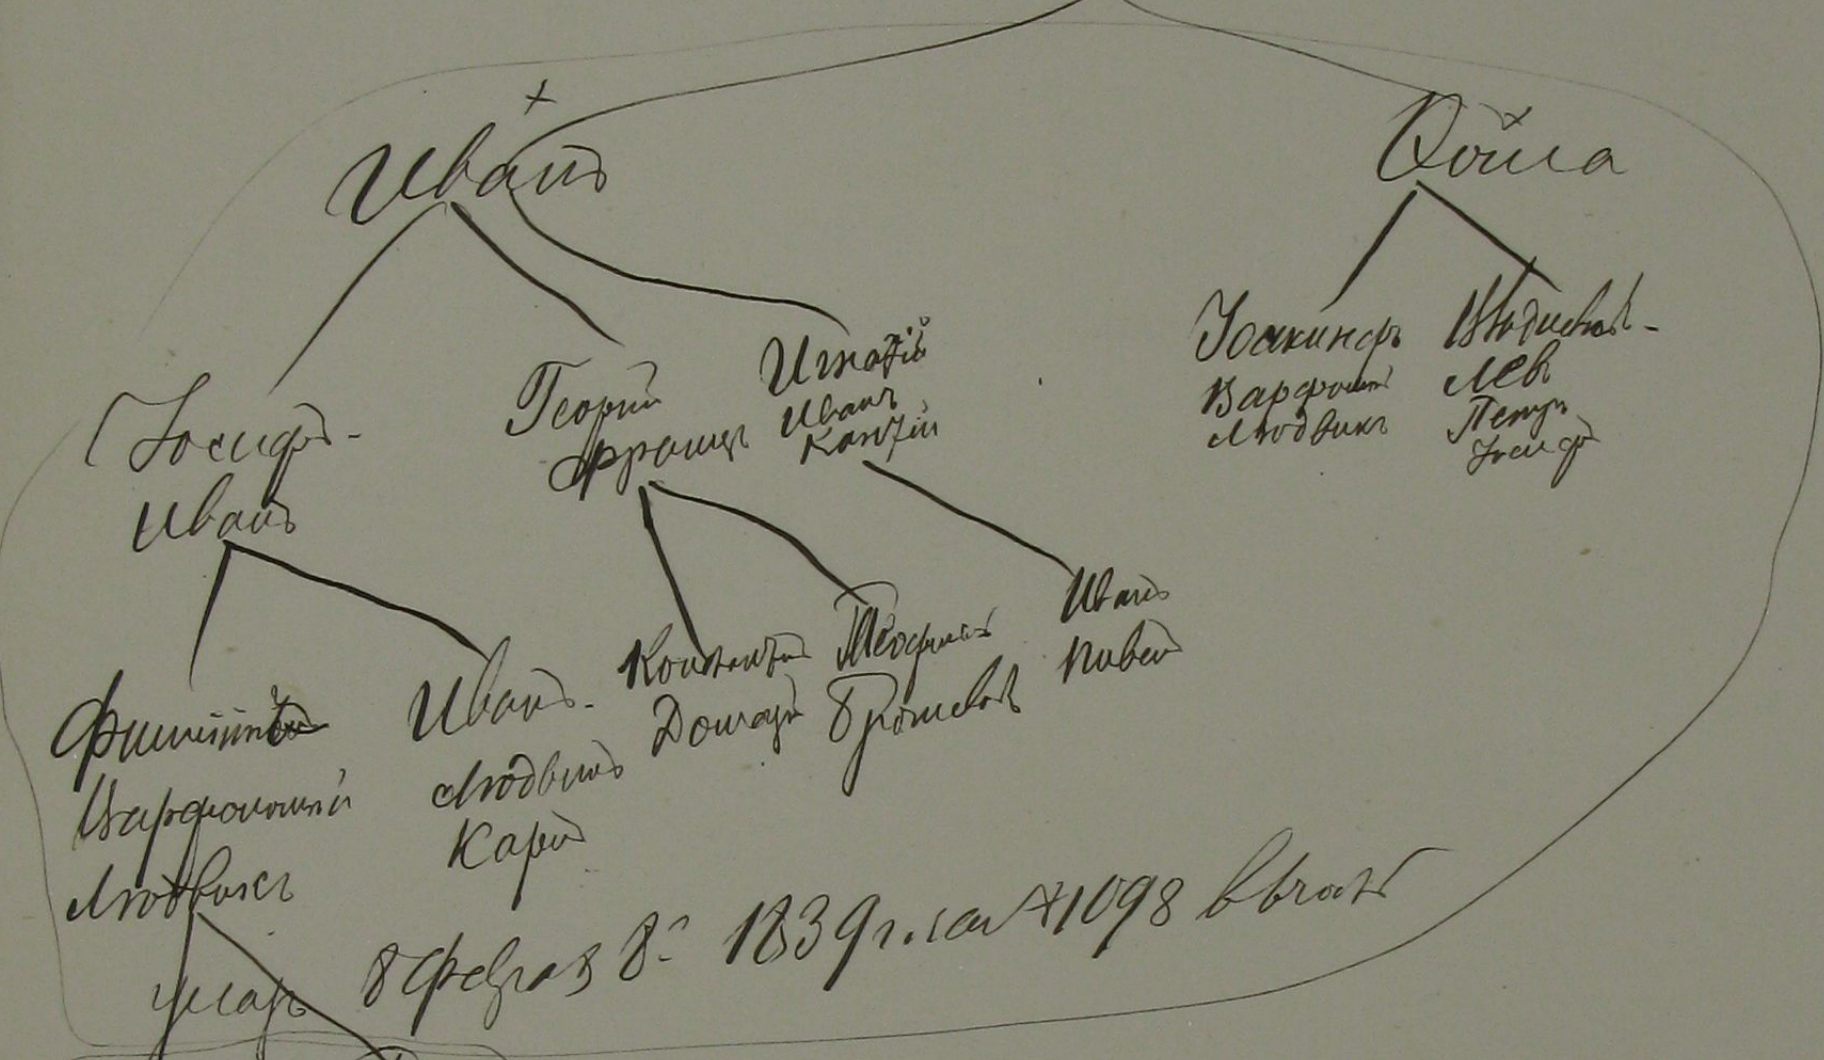 Иванъ
Фома
Іосифъ-
Иванъ
Георгій
Францъ
Игнатій
Иванъ
Кантій
Іоакинфъ
Варфолом
Людвикъ
Владисвав-
Левъ
Петръ
Іосифъ
Варфоломей
Людвикъ
Иванъ-
Людвикъ
Карл
Константин
Донатъ
Теофилъ
Брониславъ
Иванъ
8 Феврал 8 1839 г. №1098